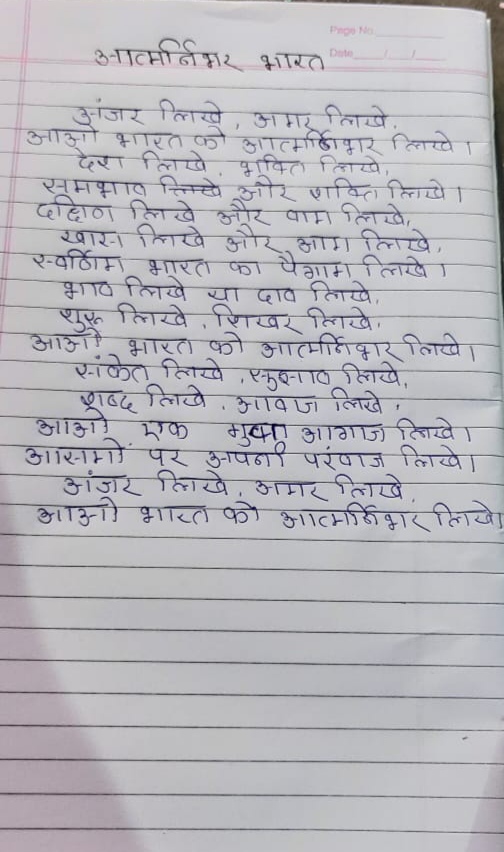 Page No.
Date / /
आत्मर्निभर भारत
अंजर लिखे, अमर लिखे,
आओ भारत को आत्मर्निभर लिखे।
देश लिखे, भक्ति लिखे,
समभाव लिखे और शक्ति लिखे।
दक्षिण लिखे और वाम लिखे,
खास लिखे और आम लिखे,
स्वर्णिम भारत का पैगाम लिखे।
भाव लिखे या दाव लिखे,
शुरू लिखे, शिखर लिखे,
आओ भारत को आत्मर्निभर लिखे।
संकेत लिखे, सुझाव लिखे,
शब्द लिखे, आवाज लिखे,
आओ एक आगाज लिखे।
आसमां पर अपनी परवाज लिखे।
अंजर लिखे, अमर लिखे,
आओ भारत को आत्मर्निभर लिखे।